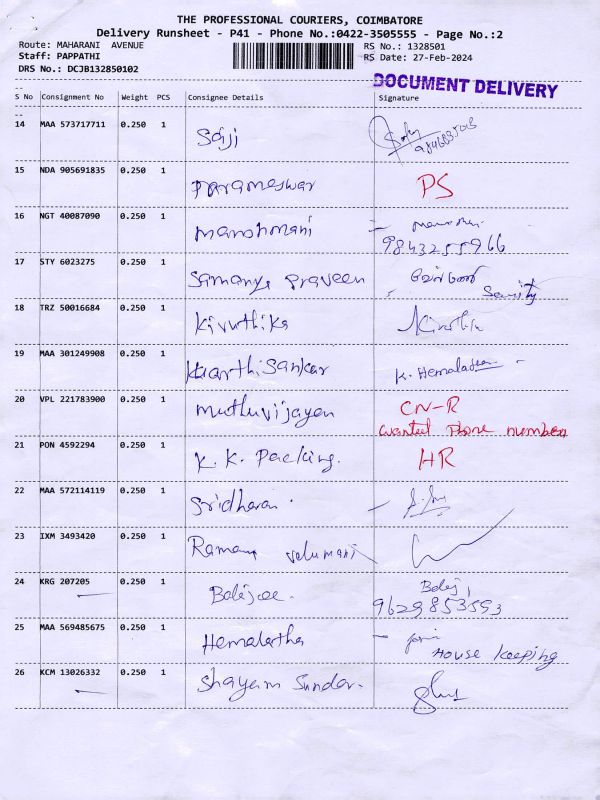 THE PROFESSIONAL COURIERS, COIMBATORE
Delivery Runsheet - P41 - Phone No.:0422-3505555 - Page No.:2
Route: MAHARANI AVENUE RS No.: 1328501
Staff: PAPPATHI RS Date: 27-Feb-2024
DRS No.: DCJB132850102
DOCUMENT DELIVERY
S No Consignment No Weight PCS Consignee Details Signature
14 MAA 573717711 0.250 1 Saji
15 NDA 905691835 0.250 1 Parameswar PS
16 NGT 40087090 0.250 1 Manohmani
9843255966
17 STY 6023275 0.250 1 Samanya Praveen
18 TRZ 50016684 0.250 1 Kivuthika
19 MAA 301249908 0.250 1 Kharthisankar K. Hemalatha
20 VPL 221783900 0.250 1 Muthuvijayan CN-R
wanted Phone number
21 PON 4592294 0.250 1 K. K. Packing. HR
22 MAA 572114119 0.250 1 Sridharan.
23 IXM 3493420 0.250 1 Raman Velumani
24 KRG 207205 0.250 1 Balejee. Balaji
9629853553
25 MAA 569485675 0.250 1 Hemalatha
House keeping
26 KCM 13026332 0.250 1 Shayam Sundar.